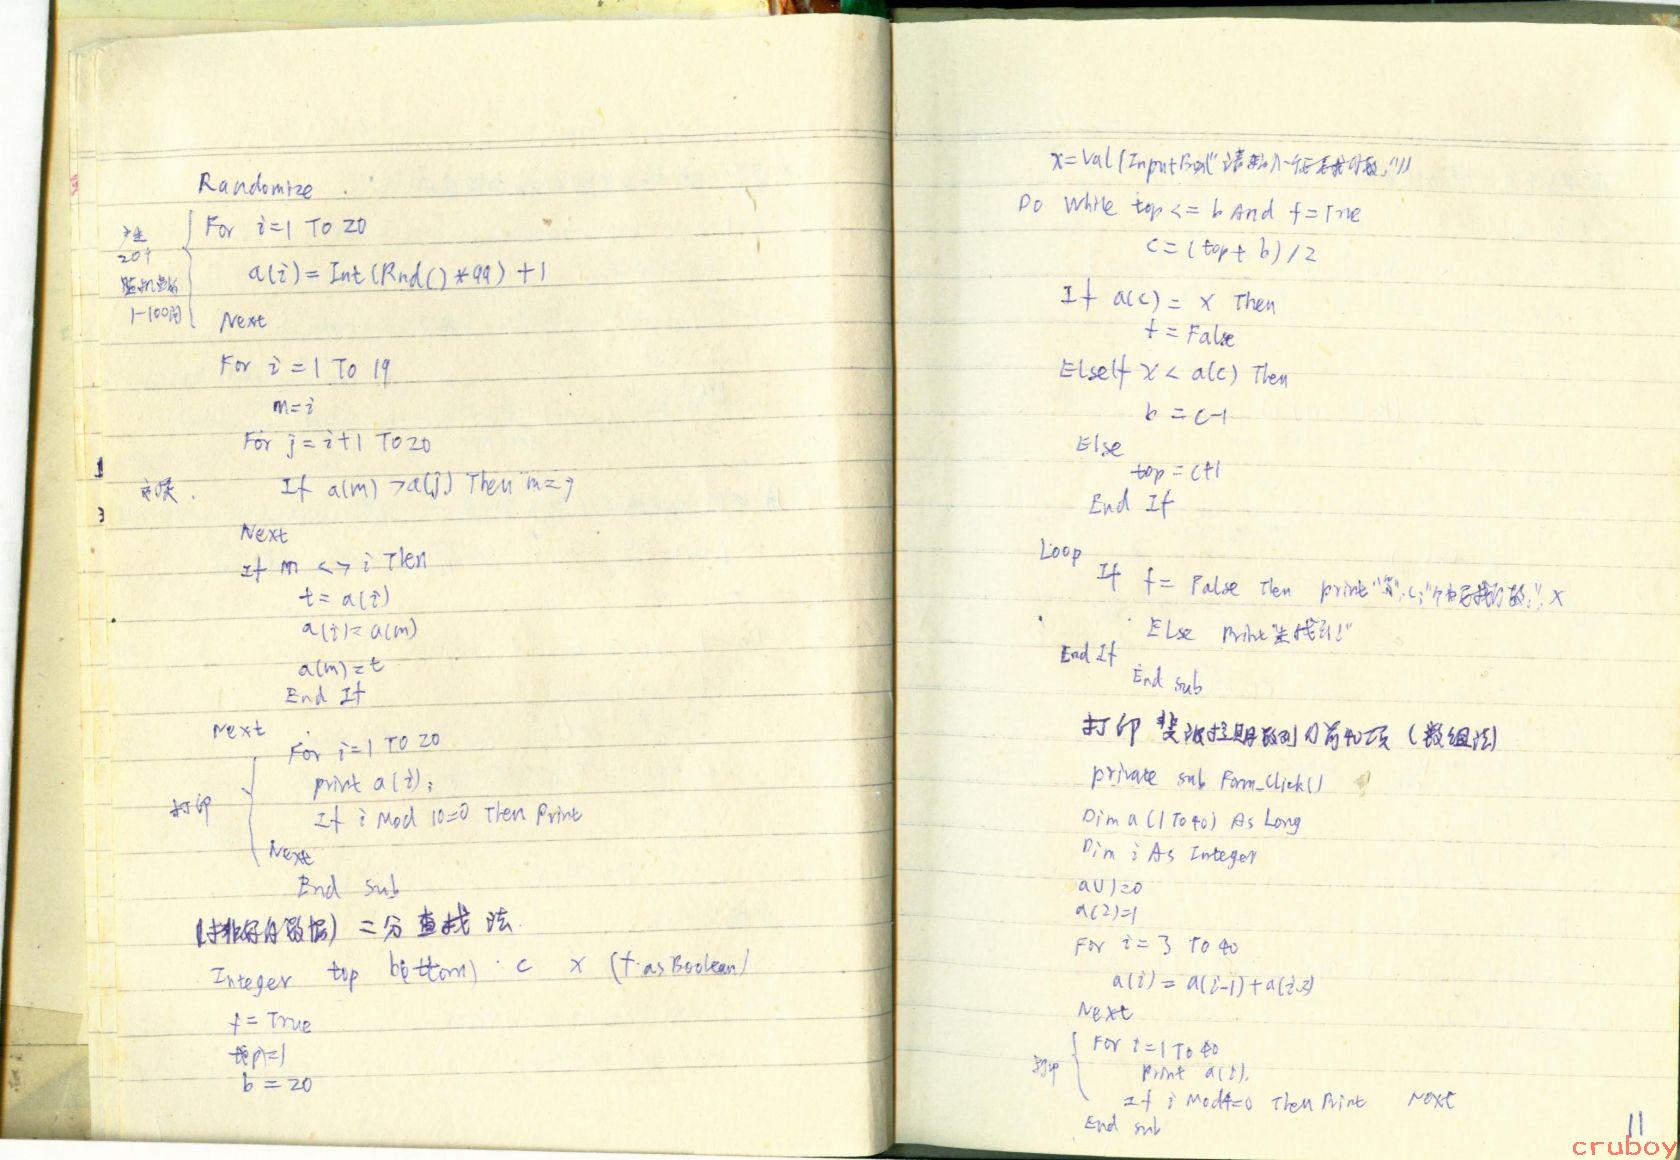 Randomize
产生
20个
随机整数
1-100间
For i=1 To 20
a(i)=Int(Rnd()*99)+1
Next
For i=1 To 19
m=i
For j=i+1 To 20
If a(m)>a(j) Then m=j
Next
If m <> i Then
t=a(i)
a(i)=a(m)
a(m)=t
End If
Next
打印
For i=1 TO 20
print a(i);
If i Mod 10=0 Then Print
Next
End sub
(排好序数据) 二分查找法.
Integer top b(ottom) c x (f as Boolean)
f=True
top=1
b=20
x=Val(InputBox("请输入一个要找的数:"))
Do While top<=b And f=True
c=(top+b)/2
If a(c)=x Then
f=False
ElseIf x<a(c) Then
b=c-1
Else
top=c+1
End If
Loop
If f=False Then print "第";c;"个为要找的数:"; x
Else Print "未找到!"
End If
End sub
打印斐波拉契数列的前40项(数组法)
private sub Form_Click()
Dim a(1 To 40) As Long
Dim i As Integer
a(1)=0
a(2)=1
For i=3 To 40
a(i)=a(i-1)+a(i-2)
Next
打印
For i=1 To 40
Print a(i),
If i Mod 4=0 Then Print Next
End sub
11
cruboy